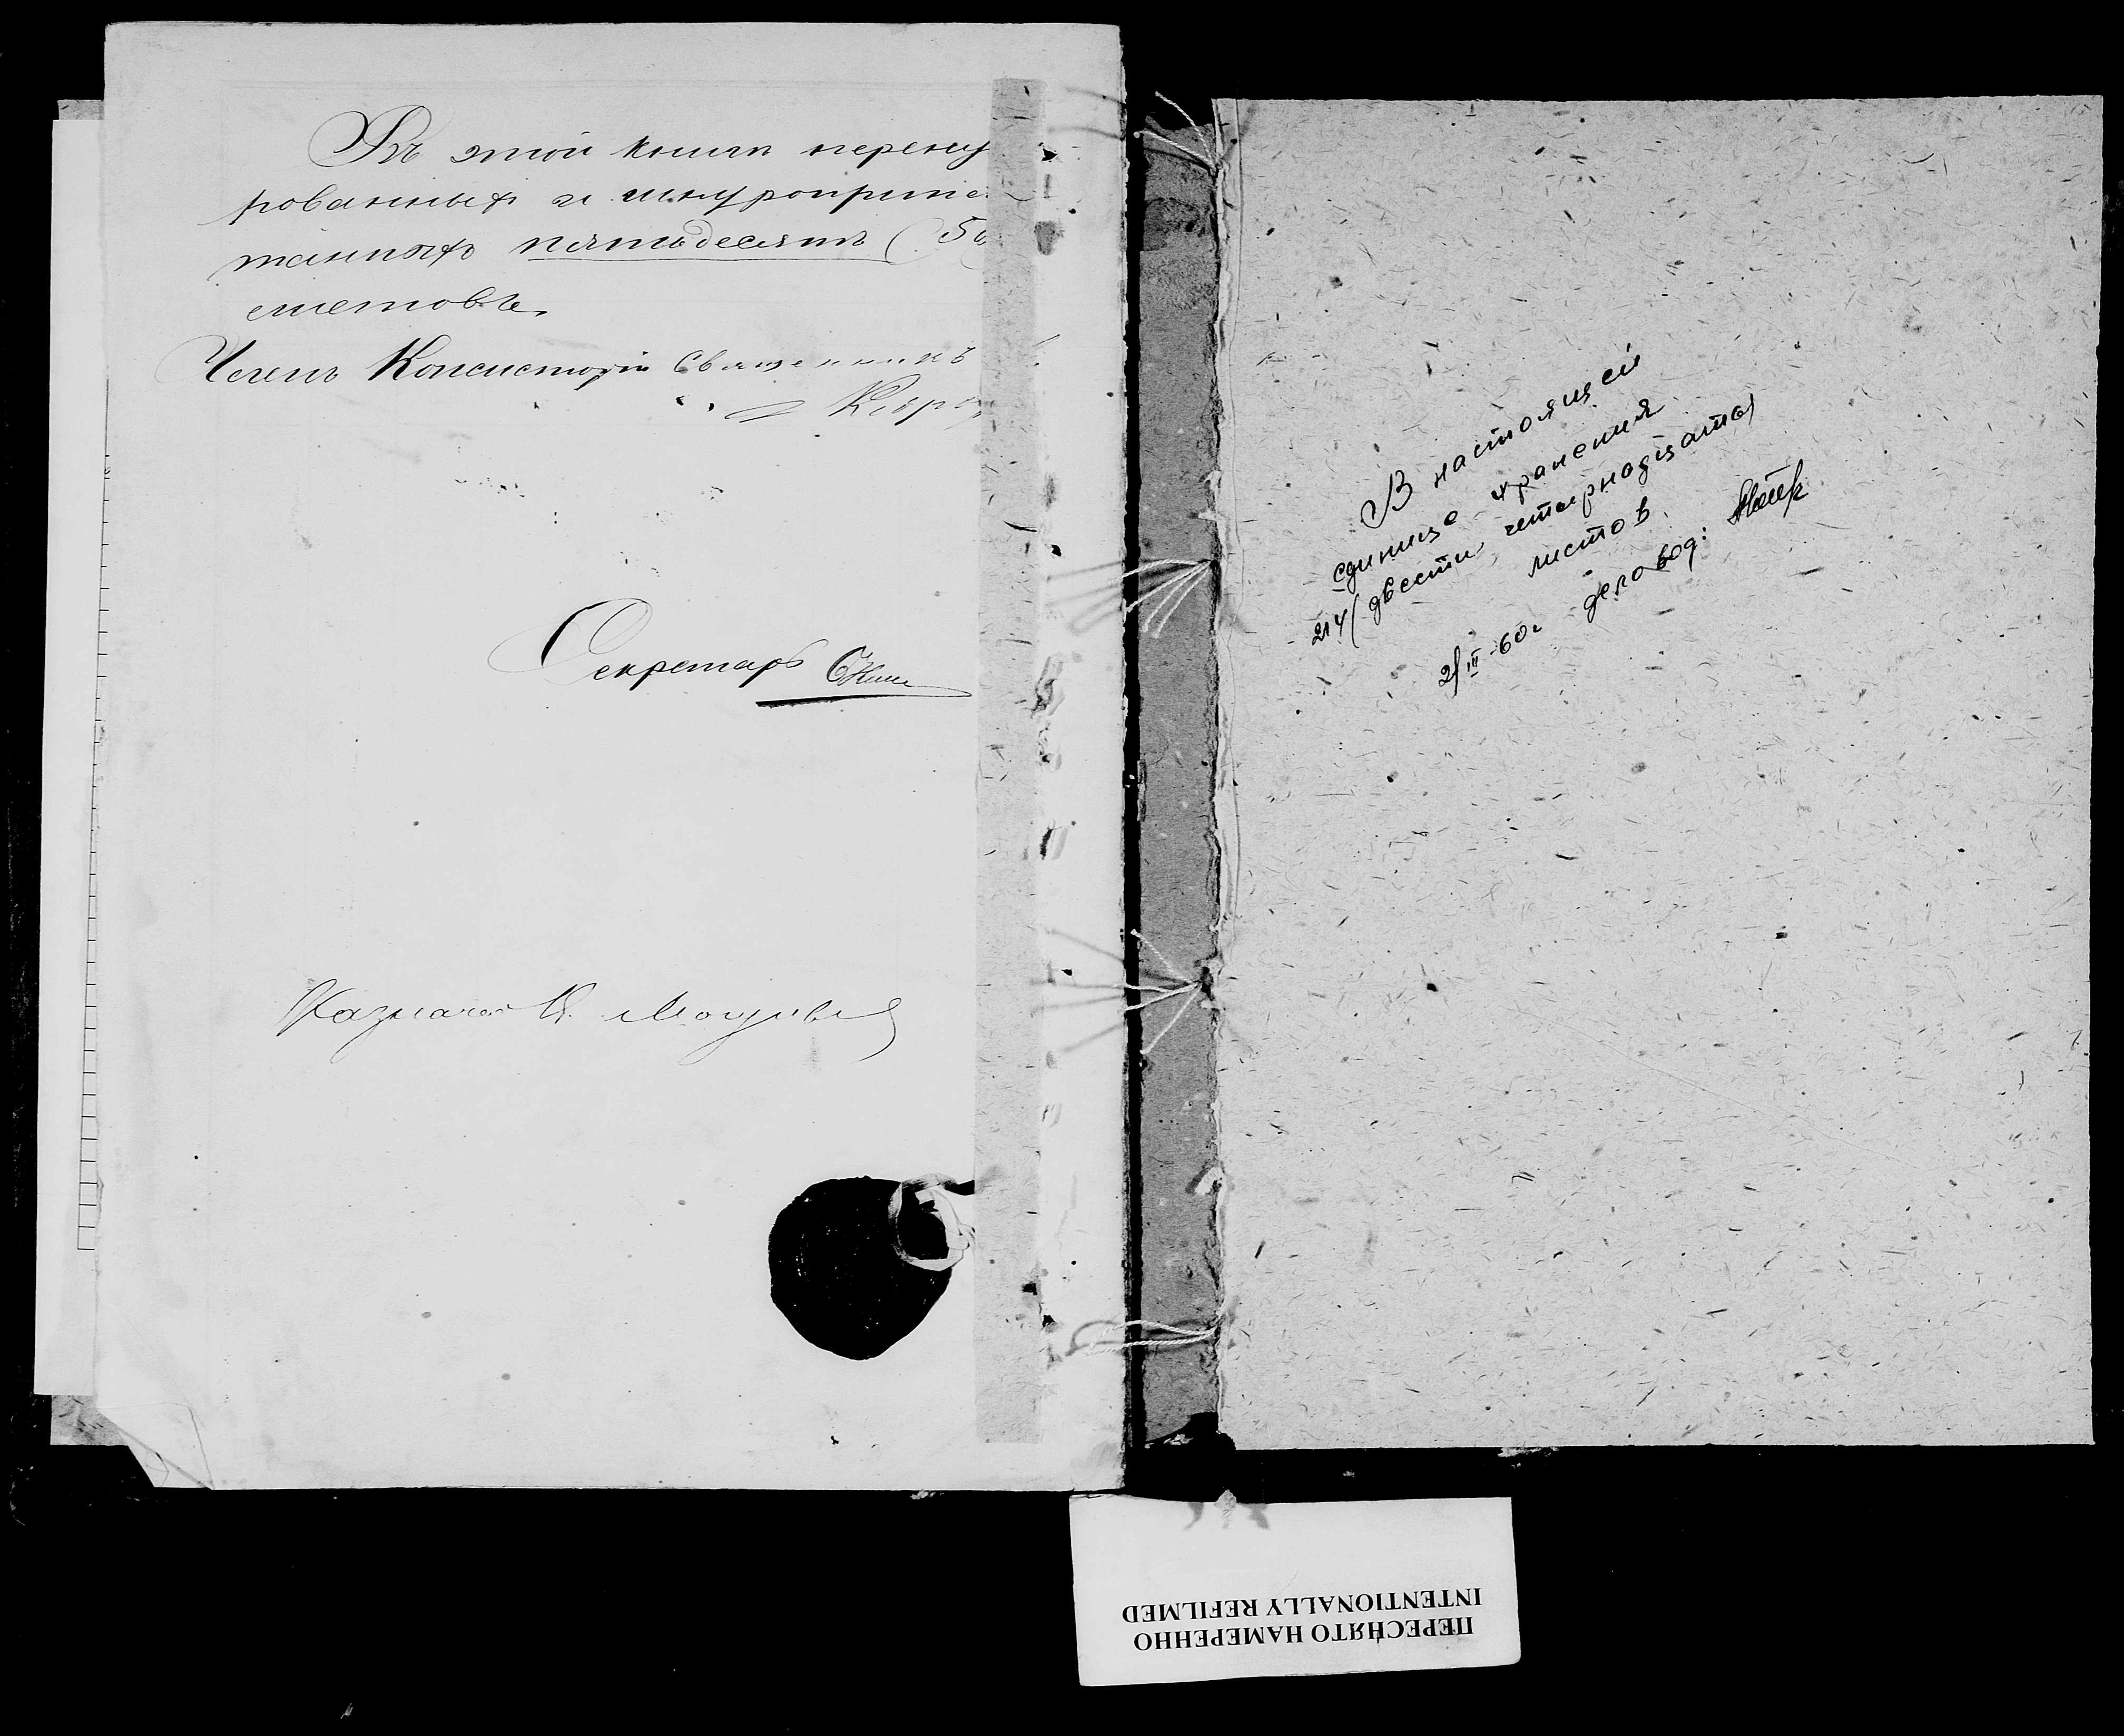 Въ этой книгѣ перену
рованныхъ и шнуроприпе
танныхъ пятьдесятъ (50
листовъ.
Членъ Консисторіи Священникъ
Секретарь
Казначей
В настоящей
единице хранения
214 (двести четырнадцать)
листов.
2/III-60г делопод:
ПЕРЕСНЯТО НАМЕРЕННО
INTENTIONALLY REFILMED